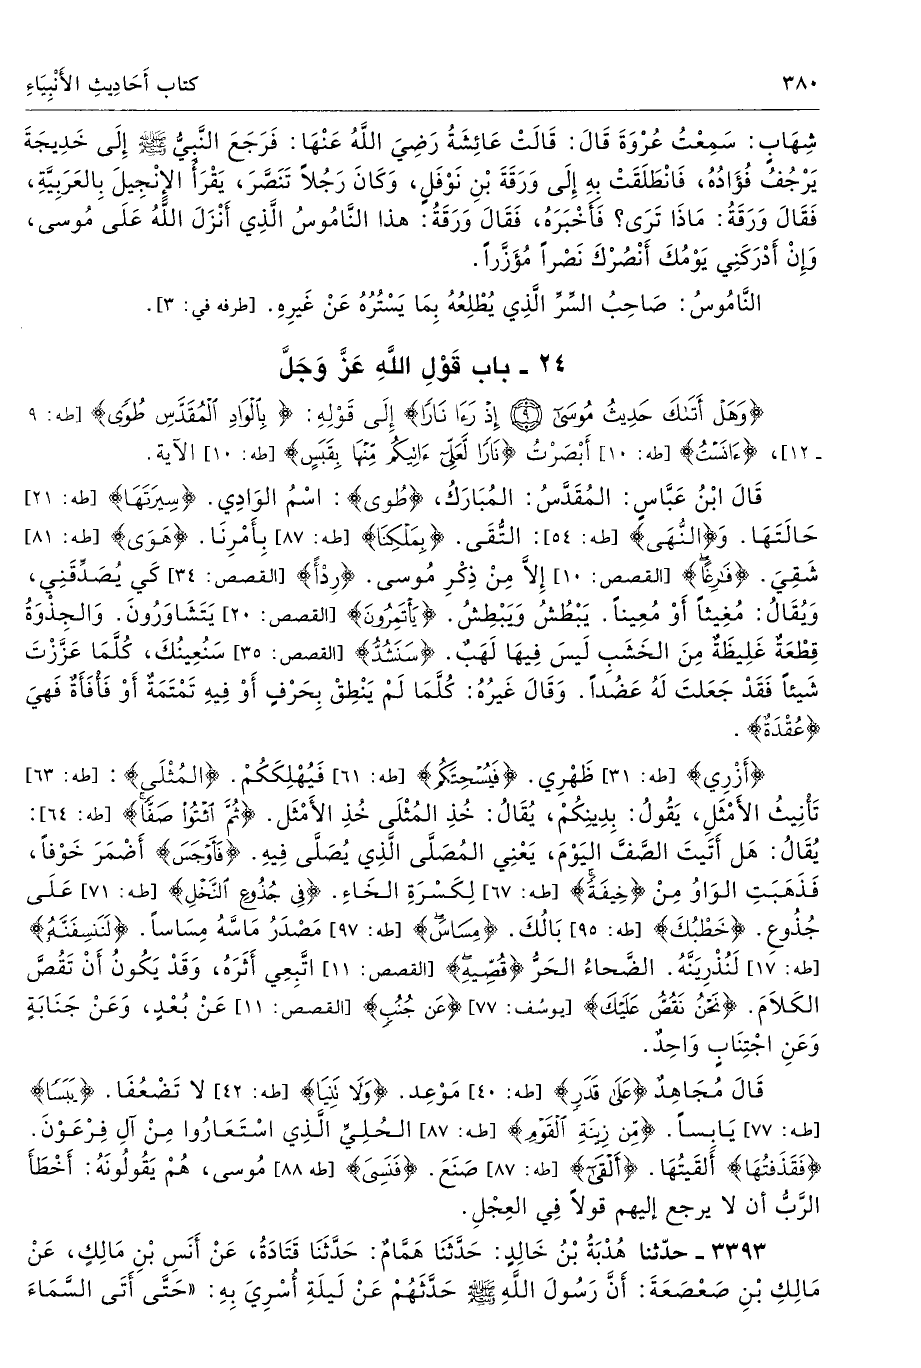 ٣٨٠
كتاب أَحَادِيثِ الأَنْبِيَاءِ
شِهَابٍ: سَمِعْتُ عُرْوَةَ قَالَ: قَالَتْ عَائِشَةُ رَضِيَ اللَّهُ عَنْهَا: فَرَجَعَ النَّبِيُّ ﷺ إِلَى خَدِيجَةَ
يَرْجُفُ فُؤَادُهُ، فَانْطَلَقَتْ بِهِ إِلَى وَرَقَةَ بْنِ نَوْفَلٍ، وَكَانَ رَجُلاً تَنَصَّرَ، يَقْرَأُ الإِنْجِيلَ بِالعَرَبِيَّةِ،
فَقَالَ وَرَقَةُ: مَاذَا تَرَى؟ فَأَخْبَرَهُ، فَقَالَ وَرَقَةُ: هذا النَّامُوسُ الَّذِي أَنْزَلَ اللَّهُ عَلَى مُوسى،
وَإِنْ أَدْرَكَنِي يَوْمُكَ أَنْصُرْكَ نَصْراً مُؤَزَّراً.
النَّامُوسُ: صَاحِبُ السِّرِّ الَّذِي يُطْلِعُهُ بِمَا يَسْتُرُهُ عَنْ غَيرِهِ. [طرفه في: ٣].
٢٤ ـ باب قَوْلِ اللَّهِ عَزَّ وَجَلَّ
﴿وَهَلْ أَتَىٰكَ حَدِيثُ مُوسَىٰٓ ۝٩ إِذْ رَءَا نَارًا﴾ إِلَى قَوْلِهِ: ﴿بِٱلْوَادِ ٱلْمُقَدَّسِ طُوًى﴾ [طه: ٩
ـ ١٢]، ﴿ءَانَسْتُ﴾ [طه: ١٠] أَبْصَرْتُ ﴿نَارًا لَّعَلِّىٓ ءَاتِيكُم مِّنْهَا بِقَبَسٍ﴾ [طه: ١٠] الآية.
قَالَ ابْنُ عَبَّاسٍ: المُقَدَّسُ: المُبَارَكُ، ﴿طُوى﴾: اسْمُ الوَادِي. ﴿سِيرَتَهَا﴾ [طه: ٢١]
حَالَتَهَا. وَ﴿النُّهَى﴾ [طه: ٥٤]: التُّقَى. ﴿بِمَلْكِنَا﴾ [طه: ٨٧] بِأَمْرِنَا. ﴿هَوَى﴾ [طه: ٨١]
شَقِيَ. ﴿فَٰرِغًا﴾ [القصص: ١٠] إِلاَّ مِنْ ذِكْرِ مُوسى. ﴿رِدْأً﴾ [القصص: ٣٤] كَي يُصَدِّقَنِي،
وَيُقَالُ: مُغِيثاً أَوْ مُعِيناً. يَبْطُشُ وَيَبْطِشُ. ﴿يَأْتَمِرُونَ﴾ [القصص: ٢٠] يَتَشَاوَرُونَ. وَالجِذْوَةُ
قِطْعَةٌ غَلِيظَةٌ مِنَ الخَشَبِ لَيسَ فِيهَا لَهَبٌ. ﴿سَنَشُدُّ﴾ [القصص: ٣٥] سَنُعِينُكَ، كُلَّمَا عَزَّزْتَ
شَيئاً فَقَدْ جَعَلتَ لَهُ عَضُداً. وَقَالَ غَيرُهُ: كُلَّمَا لَمْ يَنْطِقْ بِحَرْفٍ أَوْ فِيهِ تَمْتَمَةٌ أَوْ فَأْفَأَةٌ فَهِيَ
﴿عُقْدَةٌ﴾.
﴿أَزْرِي﴾ [طه: ٣١] ظَهْرِي. ﴿فَيُسْحِتَكُم﴾ [طه: ٦١] فَيُهْلِكَكُمْ. ﴿المُثْلَى﴾: [طه: ٦٣]
تَأْنِيثُ الأَمْثَلِ، يَقُولُ: بِدِينِكُمْ، يُقَالُ: خُذِ المُثْلَى خُذِ الأَمْثَلَ. ﴿ثُمَّ ٱئْتُوا۟ صَفًّا﴾ [طه: ٦٤]:
يُقَالُ: هَل أَتَيتَ الصَّفَّ اليَوْمَ، يَعْنِي المُصَلَّى الَّذِي يُصَلَّى فِيهِ. ﴿فَأَوْجَسَ﴾ أَضْمَرَ خَوْفاً،
فَذَهَبَتِ الوَاوُ مِنْ ﴿خِيفَةً﴾ [طه: ٦٧] لِكَسْرَةِ الخَاءِ. ﴿فِى جُذُوعِ ٱلنَّخْلِ﴾ [طه: ٧١] عَلَى
جُذُوعِ. ﴿خَطْبُكَ﴾ [طه: ٩٥] بَالُكَ. ﴿مِسَاسَ﴾ [طه: ٩٧] مَصْدَرُ مَاسَّهُ مِسَاساً. ﴿لَنَنسِفَنَّهُ﴾
[طه: ١٧] لَنُذْرِيَنَّهُ. الضَّحاءُ الحَرُّ ﴿قُصِّيهِ﴾ [القصص: ١١] اتَّبِعِي أَثَرَهُ، وَقَدْ يَكُونُ أَنْ تَقُصَّ
الكَلاَمَ. ﴿نَحْنُ نَقُصُّ عَلَيْكَ﴾ [يوسُف: ٧٧] ﴿عَن جُنُبٍ﴾ [القصص: ١١] عَنْ بُعْدٍ، وَعَنْ جَنَابَةٍ
وَعَنِ اجْتِنَابٍ وَاحِدٌ.
قَالَ مُجَاهِدٌ ﴿عَلَىٰ قَدَرٍ﴾ [طه: ٤٠] مَوْعِد. ﴿وَلَا تَنِيَا﴾ [طه: ٤٢] لا تَضْعُفَا. ﴿يَبَسًا﴾
[طه: ٧٧] يَابِساً. ﴿مِّن زِينَةِ ٱلْقَوْمِ﴾ [طه: ٨٧] الحُلِيِّ الَّذِي اسْتَعَارُوا مِنْ آلِ فِرْعَوْنَ.
﴿فَقَذَفتُهَا﴾ أَلقَيتُهَا. ﴿أَلْقَى﴾ [طه: ٨٧] صَنَعَ. ﴿فَنَسِىَ﴾ [طه ٨٨] مُوسى، هُمْ يَقُولُونَهُ: أَخْطَأَ
الرَّبُّ أن لا يرجع إليهم قولاً فِي العِجْلِ.
٣٣٩٣ ـ حدّثنا هُدْبَةُ بْنُ خَالِدٍ: حَدَّثَنَا هَمَّامٌ: حَدَّثَنَا قَتَادَةُ، عَنْ أَنَسِ بْنِ مَالِكٍ، عَنْ
مَالِكِ بْنِ صَعْصَعَةَ: أَنَّ رَسُولَ اللَّهِ ﷺ حَدَّثَهُمْ عَنْ لَيلَةِ أُسْرِيَ بِهِ: «حَتَّى أَتَى السَّمَاءَ